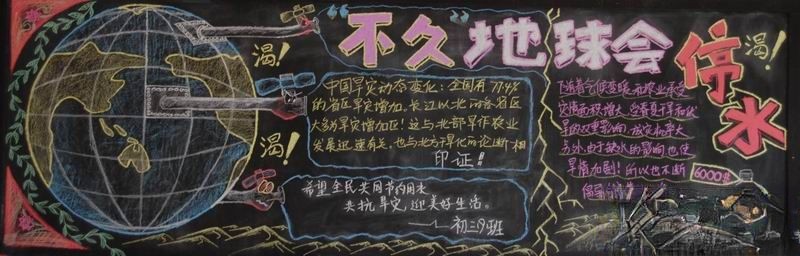 "不久"地球会停水
渴!
渴!
渴!
中国旱灾动态变化:全国有77.4%
的省区旱灾增加。长江以北的各省区
大多为旱灾增加区!这与北部旱作农业
发展迅速有关,也与北方旱化的论断相
印证!!
希望全民共同节约用水
共抗旱灾,迎美好生活。
——初三9班
随着气候变暖和农业承受
灾情面积增大
的双重影响,成灾概率大
另外,由于缺水的影响也使
旱情加剧!所以也不断
6000